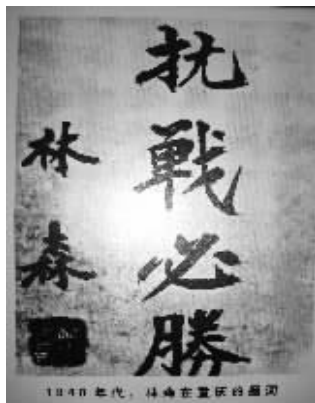 抗戰必勝
林森
1940年代，林森在重庆的题词